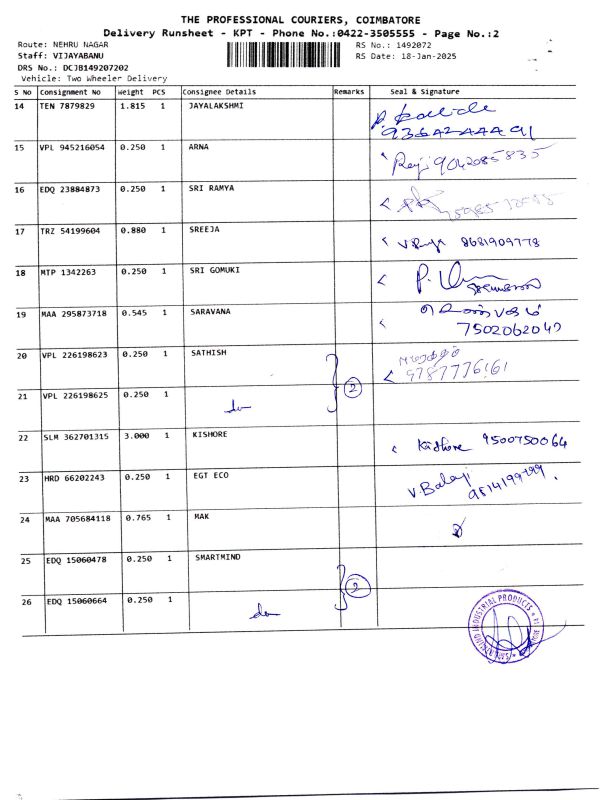 THE PROFESSIONAL COURIERS, COIMBATORE
Delivery Runsheet - KPT - Phone No.:0422-3505555 - Page No.:2
Route: NEHRU NAGAR RS No.: 1492072
Staff: VIJAYABANU RS Date: 18-Jan-2025
DRS No.: DCJB149207202
Vehicle: Two Wheeler Delivery
S No Consignment No Weight PCS Consignee Details Remarks Seal & Signature
14 TEN 7879829 1.815 1 JAYALAKSHMI
15 VPL 945216054 0.250 1 ARNA 9042085835
16 EDQ 23884873 0.250 1 SRI RAMYA
17 TRZ 54199604 0.880 1 SREEJA 8681909778
18 MTP 1342263 0.250 1 SRI GOMUKI
19 MAA 295873718 0.545 1 SARAVANA
20 VPL 226198623 0.250 1 SATHISH
21 VPL 226198625 0.250 1 do 2
22 SLM 362701315 3.000 1 KISHORE Kishore 9500750064
23 HRD 66202243 0.250 1 EGT ECO V. Balaji
24 MAA 705684118 0.765 1 MAK
25 EDQ 15060478 0.250 1 SMARTMIND
26 EDQ 15060664 0.250 1 do 2
INDUSTRIAL PRODUCTS